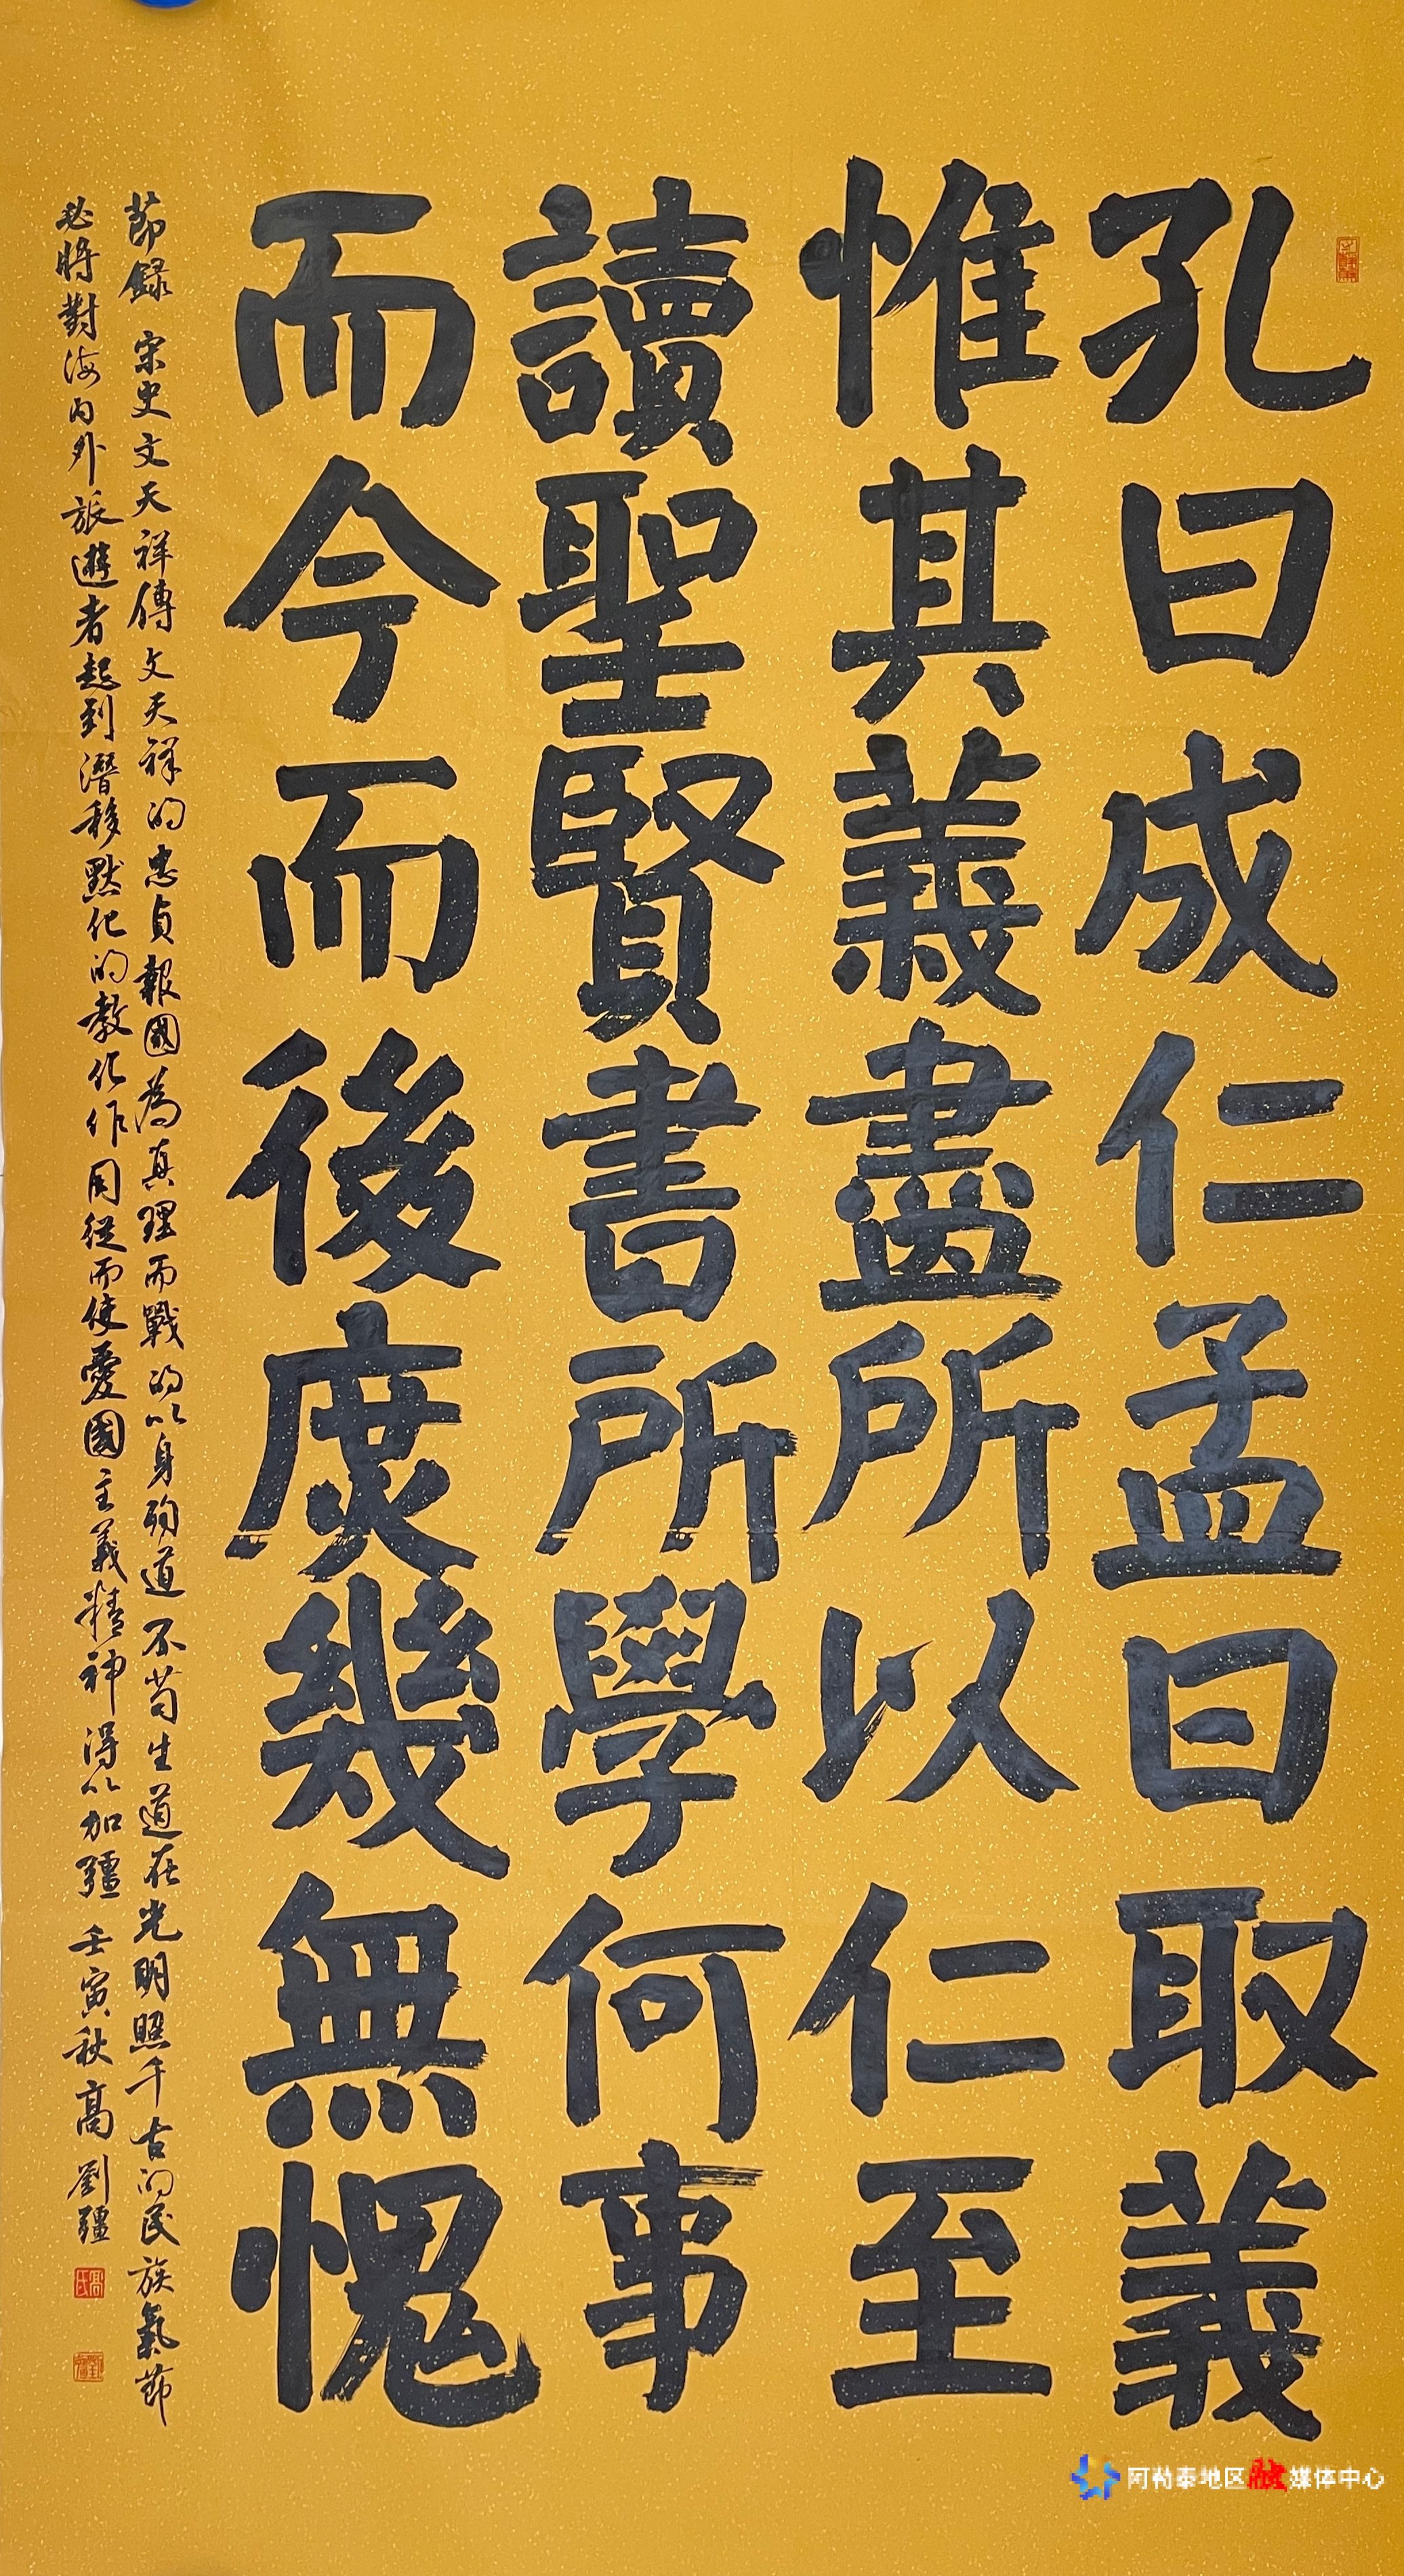 孔曰成仁孟曰取義
惟其義盡所以仁至
讀聖賢書所學何事
而今而後庶幾無愧
節録宋史文天祥傳文天祥的忠貞報國為真理而戰的以身殉道不苟生道在光明照千古的民族氣節
必將對海内外旅遊者起到潛移默化的教化作用從而使愛國主義精神得以加疆壬寅秋高劉疆
阿勒泰地区融媒体中心